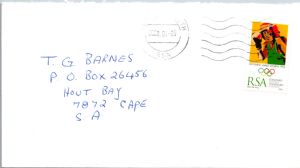 T. G BARNES
P. O. BOX 26456
HOUT BAY
7872 CAPE
S A
RSA